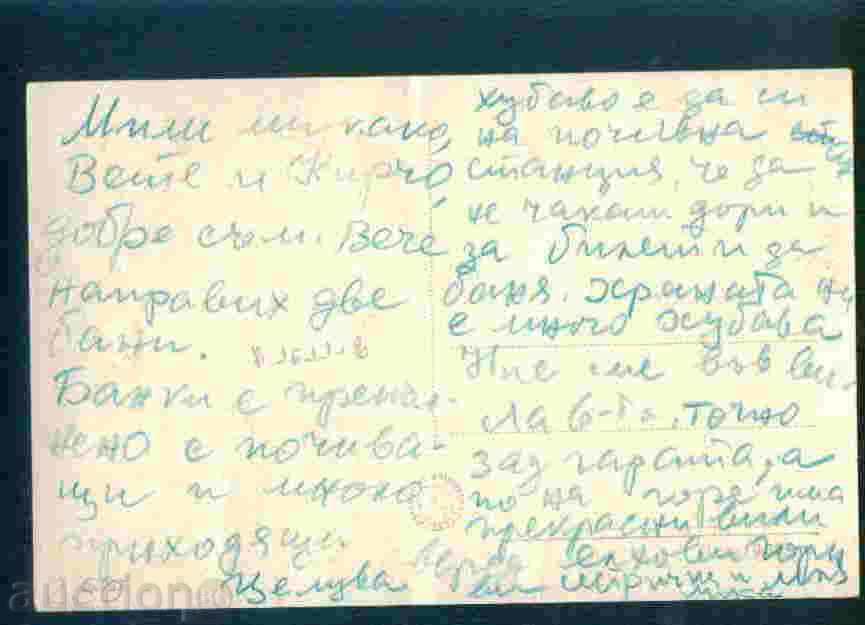 Мили ми како
Вете и Кирчо,
добре съм. Вече
направих две
бани.
Банки е препъл-
нено с почива-
щи и много
приходящи.
хубаво е да си
на почивна
станция, че да
не чакаш дори и
за билети за
баня. Храната ни
е много хубава
Ние сме във ви-
ла 6-та, точно
зад гарата, а
по на горе има
прекрасни вили
елхови гори
Целува ви